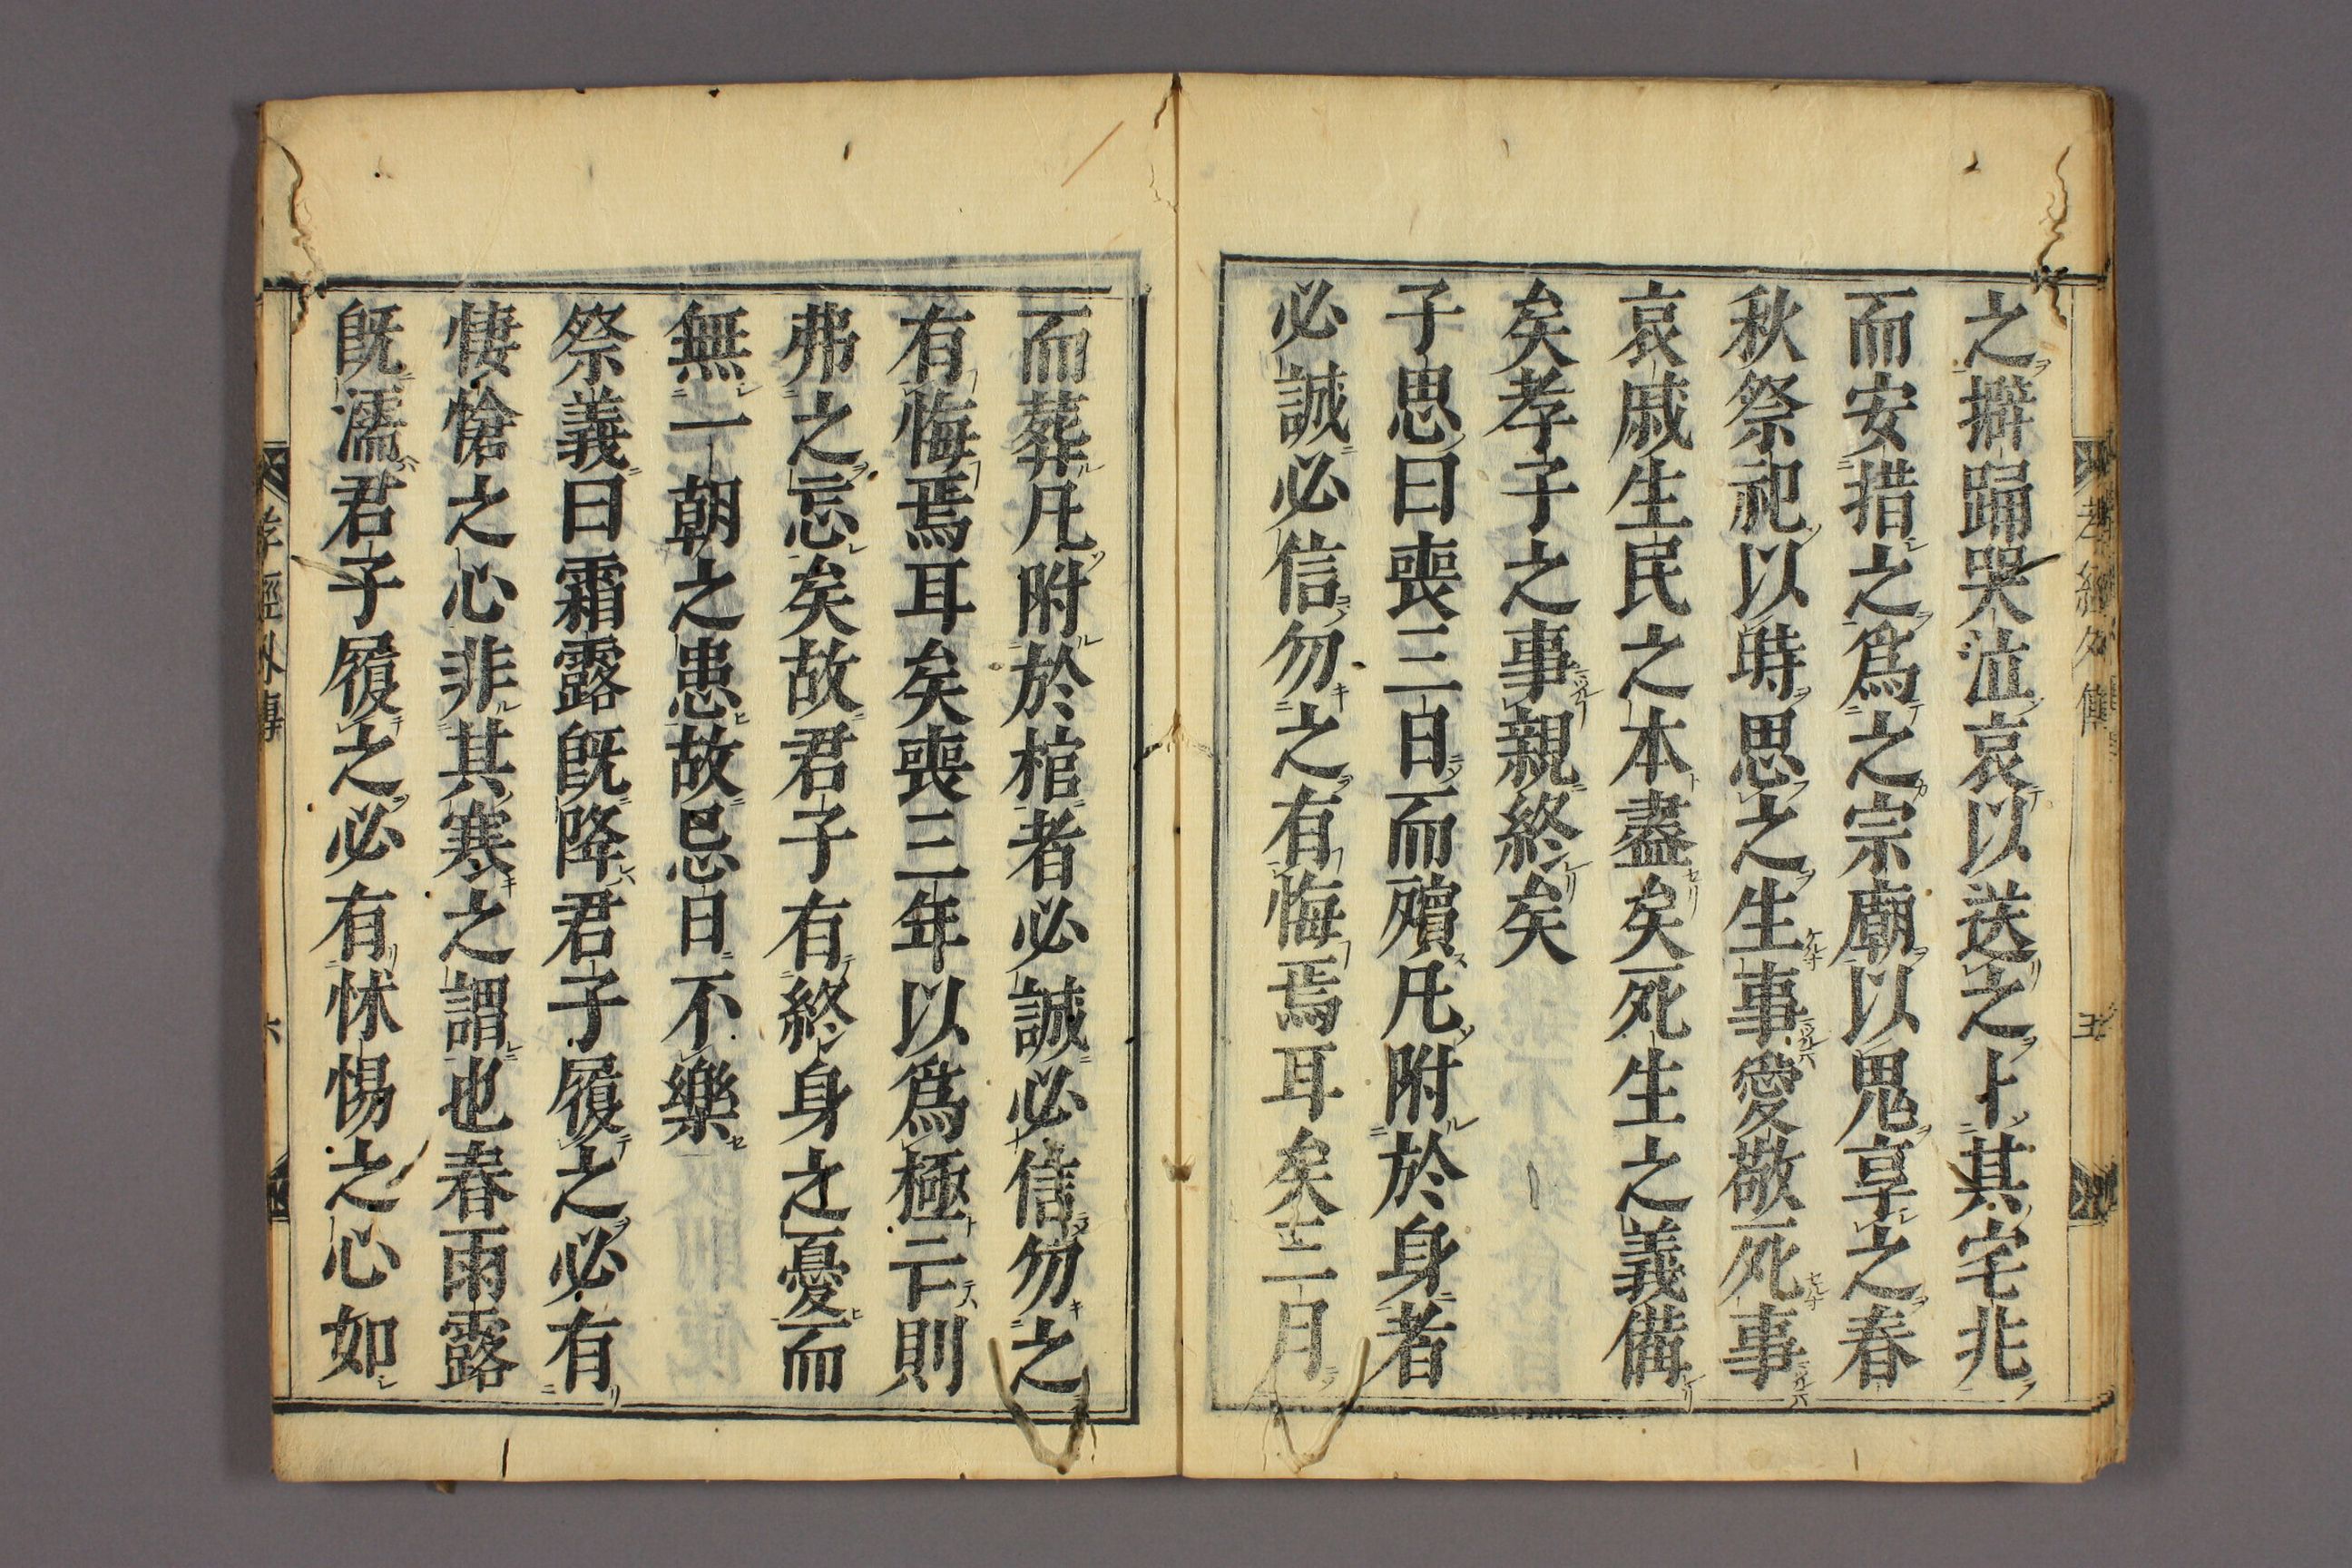 孝經外傳
五
之擗踊哭泣哀以送之卜其宅兆
而安措之爲之宗廟以鬼享之春
秋祭祀以時思之生事愛敬死事
哀戚生民之本盡矣死生之義備
矣孝子之事親終矣
子思曰喪三日而殯凡附於身者
必誠必信勿之有悔焉耳矣三月
而葬凡附於棺者必誠必信勿之
有悔焉耳矣喪三年以爲極亡則
弗之忘矣故君子有終身之憂而
無一朝之患故忌日不樂
祭義曰霜露既降君子履之必有
悽愴之心非其寒之謂也春雨露
既濡君子履之必有怵惕之心如
孝經外傳
六